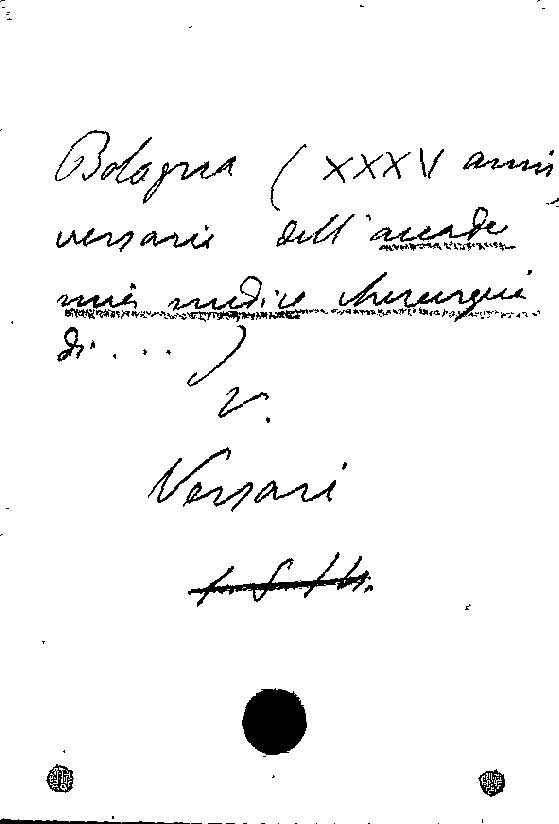 Bologna (XXXV anni
versario dell'accade
mia medico chirurgica
di ... )
V.
Versari